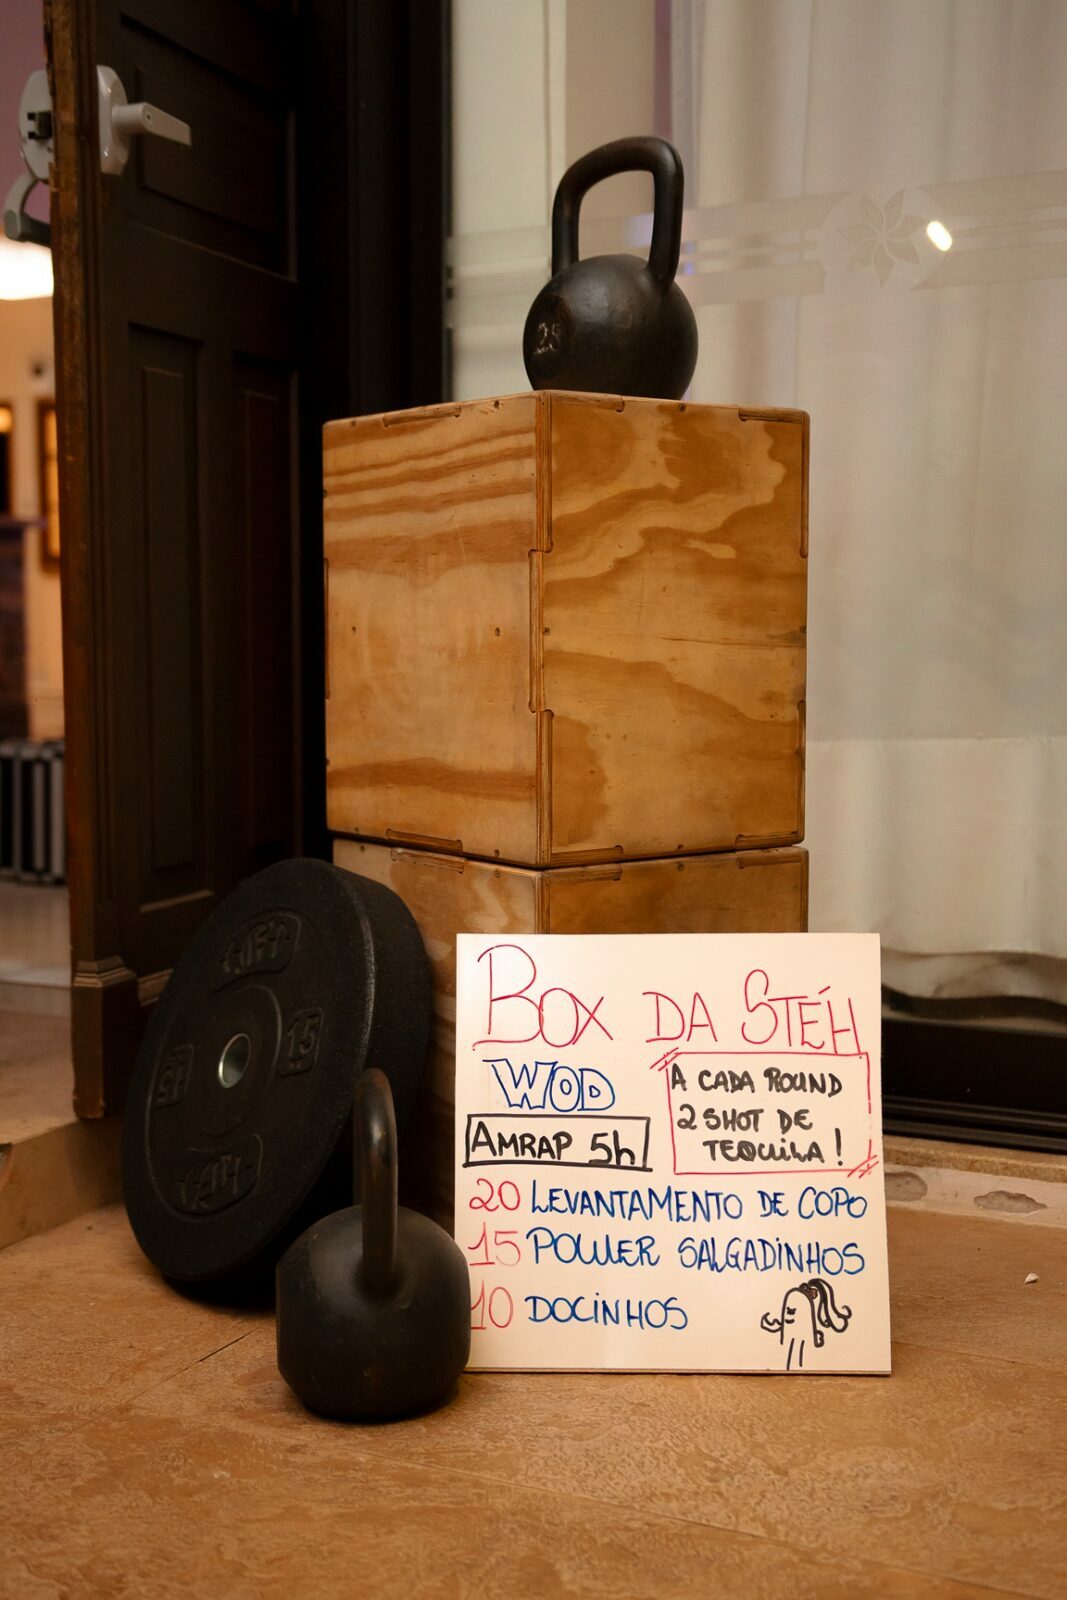 28
15
15
BOX DA STÉH
WOD
AMRAP 5h
A CADA ROUND
2 SHOT DE
TEQUILA!
20 LEVANTAMENTO DE COPO
15 POWER SALGADINHOS
10 DOCINHOS